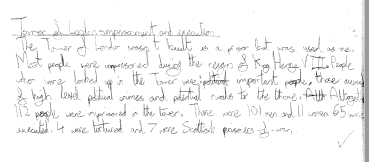 Tower of London imprisonment and execution.
The Tower of London wasn't built as a prison but was used as one.
Most people were imprisoned during the reign of King Henry VIII. People
who were locked up in the Tower were political important people, those accused
of high level political crimes and political rivals to the throne. Altogether
112 people were imprisoned in the tower. There were 101 men and 11 women. 65 were
executed. 4 were tortured and 7 were Scottish prisoners-of-war.